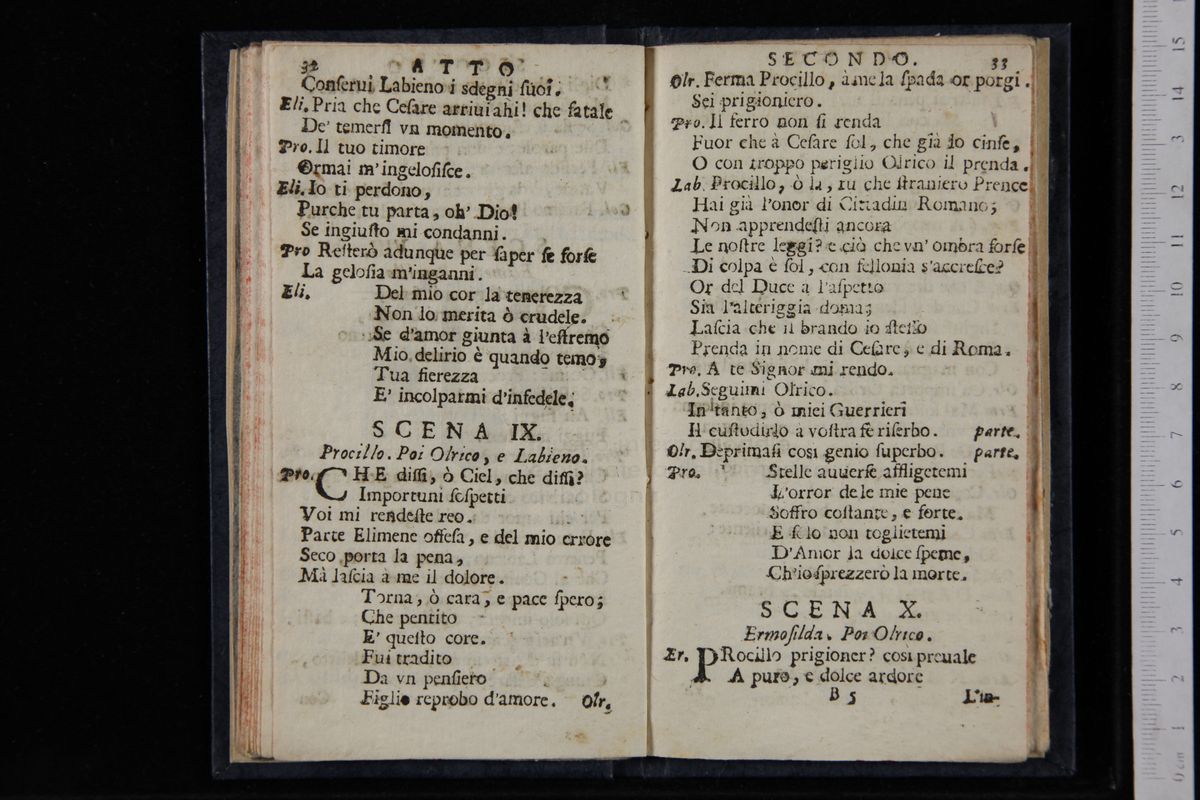 32 ATTO
Conſerui Labieno i sdegni ſuoi.
Eli. Pria che Ceſare arriui ahi! che fatale
De' temerſi vn momento.
Pro. Il tuo timore
Ormai m'ingeloſiſce.
Eli. Io ti perdono,
Purche tu parta, oh' Dio!
Se ingiuſto mi condanni.
Pro Reſterò adunque per ſaper ſe forſe
La geloſia m'inganni.
Eli. Del mio cor la tenerezza
Non lo merita ò crudele.
Se d'amor giunta à l'eſtremo
Mio delirio è quando temo,
Tua fierezza
E' incolparmi d'infedele.
SCENA IX.
Procillo. Poi Olrico, e Labieno.
Pro. CHE diſſi, ò Ciel, che diſſi?
Importuni ſoſpetti
Voi mi rendeſte reo.
Parte Elimene offeſa, e del mio errore
Seco porta la pena,
Mà laſcia à me il dolore.
Torna, ò cara, e pace ſpero;
Che pentito
E' queſto core.
Fui tradito
Da vn penſiero
Figlio reprobo d'amore. Olr.
SECONDO. 33
Olr. Ferma Procillo, à me la ſpada or porgi.
Sei prigioniero.
Pro. Il ferro non ſi renda
Fuor che à Ceſare ſol, che già lo cinſe,
O con troppo periglio Olrico il prenda.
Lab. Procillo, ò là, tu che ſtraniero Prence
Hai già l'onor di Cittadin Romano;
Non apprendeſti ancora
Le noſtre leggi? e ciò che vn' ombra forſe
Di colpa è ſol, con fellonia s'accreſce?
Or del Duce a l'aſpetto
Sia l'alteriggia doma;
Laſcia che il brando io ſteſſo
Prenda in nome di Ceſare, e di Roma.
Pro. A te Signor mi rendo.
Lab. Seguimi Olrico.
In tanto, ò miei Guerrieri
Il cuſtodirlo à voſtra fè riſerbo. parte.
Olr. Deprimaſi così genio ſuperbo. parte.
Pro. Stelle auuerſe affligetemi
L'orror dele mie pene
Soffro coſtante, e forte.
E ſolo non toglietemi
D'Amor la dolce ſpeme,
Ch'io ſprezzerò la morte.
SCENA X.
Ermoſilda. Poi Olrico.
Er. PRocillo prigioner? così preuale
A puro, e dolce ardore
B 5 L'in-